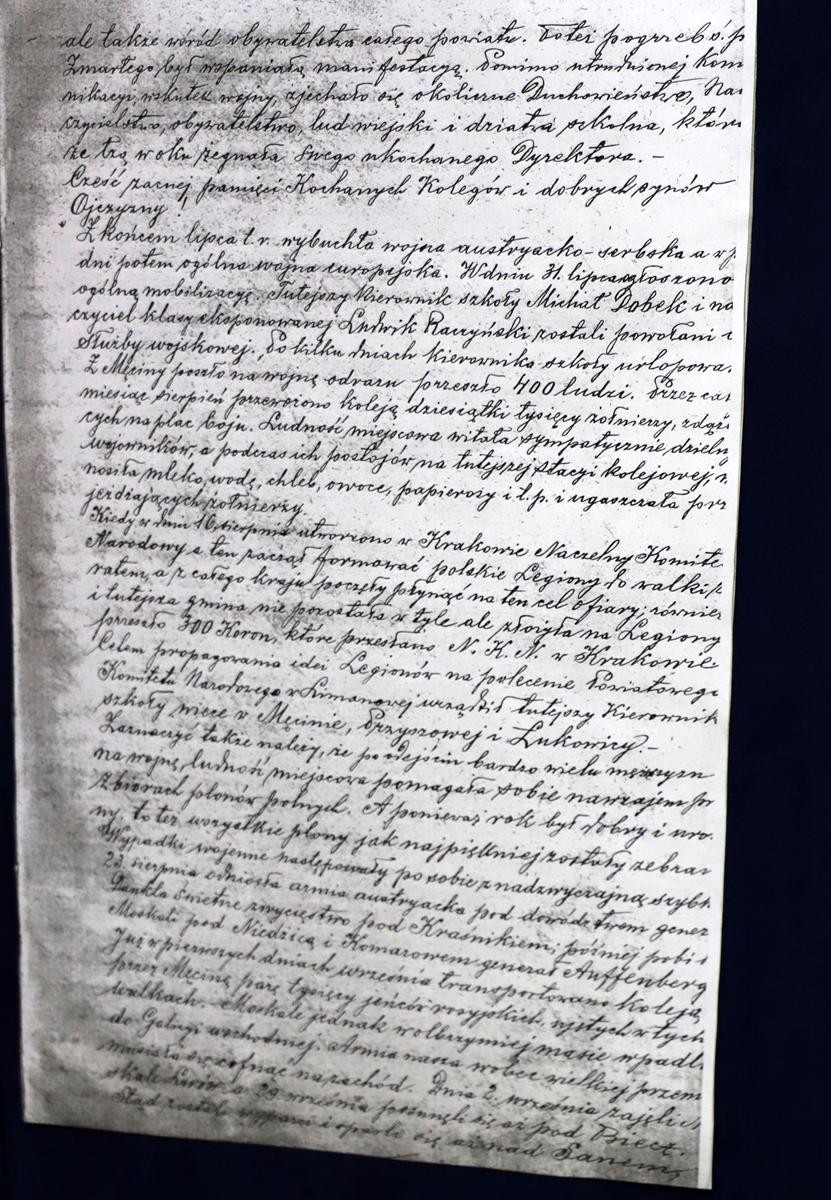 ale także wśród obywatelstwa całego powiatu. Toteż pogrzeb ś. p
Zmarłego był wspaniałą manifestacyą. Pomimo utrudnionej kom
nikacyi, wskutek wojny, zjechało się okoliczne Duchowieństwo, Na
czycielstwo, obywatelstwo, lud wiejski i dziatwa szkolna, któr
ze łzą w oku żegnała swego ukochanego Dyrektora. —
Cześć zacnej pamięci Kochanych Kolegów i dobrych synów
Ojczyzny!
Z końcem lipca t. r. wybuchła wojna austryacko-serbska a w p
dni potem ogólna wojna europejska. W dniu 31. lipca ogłoszono
ogólną mobilizacyę. Tutejszy kierownik szkoły Michał Dobek i na
czyciel klasy eksponowanej Ludwik Raczyński zostali powołani
służby wojskowej. Po kilku dniach kierownika szkoły urlopowa
Z Męciny poszło na wojnę odrazu przeszło 400 ludzi. Przez cał
miesiąc sierpień przewożono koleją dziesiątki tysięcy żołnierzy, zdąż
cych na plac boju. Ludność miejscowa witała sympatycznie dzieln
wojowników, a podczas ich postojów na tutejszej stacyi kolejowej,
nosiła mleko, wodę, chleb, owoce, papierosy i t. p. i ugaszczała prz
jeżdżających żołnierzy.
Kiedy w dniu 16 sierpnia utworzono w Krakowie Naczelny Komite
Narodowy a ten zaczął formować polskie Legiony do walki z
ratem, a z całego kraju poczęły płynąć na ten cel ofiary; równie
i tutejsza gmina nie pozostała w tyle ale złożyła na Legiony
przeszło 300 Koron, które przesłano N. K. N. w Krakowie.
Celem propagowania idei Legionów na polecenie Powiatowego
Komitetu Narodowego w Limanowej urządził tutejszy Kierownik
szkoły wiece w Męcinie, Przyszowej i Łukowicy. —
Zaznaczyć także należy, że po odejściu bardzo wielu mężczyzn
na wojnę, ludność miejscowa pomagała sobie nawzajem pr
zbiorach plonów polnych. A ponieważ rok był dobry i uro
ny, to też wszystkie plony jak najpiękniej zostały zebran
Wypadki wojenne następowały po sobie z nadzwyczajną szybk
23. sierpnia odniosła armia austryacka pod dowództwem gener
Dankla świetne zwycięstwo pod Kraśnikiem; później pobił
Moskali pod Niedzicą i Komarowem generał Auffenberg
Już w pierwszych dniach września transportowano koleją
przez Męcinę parę tysięcy jeńców rosyjskich, ujętych w tych
walkach. Moskale jednak w olbrzymiej masie wpadli
do Galicyi wschodniej. Armia nasza wobec wielkiej przem
musiała się cofnąć na zachód. Dnia 2. września zajęli M
skale Lwów a 29 września posunęli się aż pod Biecz.
Stąd zostali wyparci i oparli się aż nad Sanem,